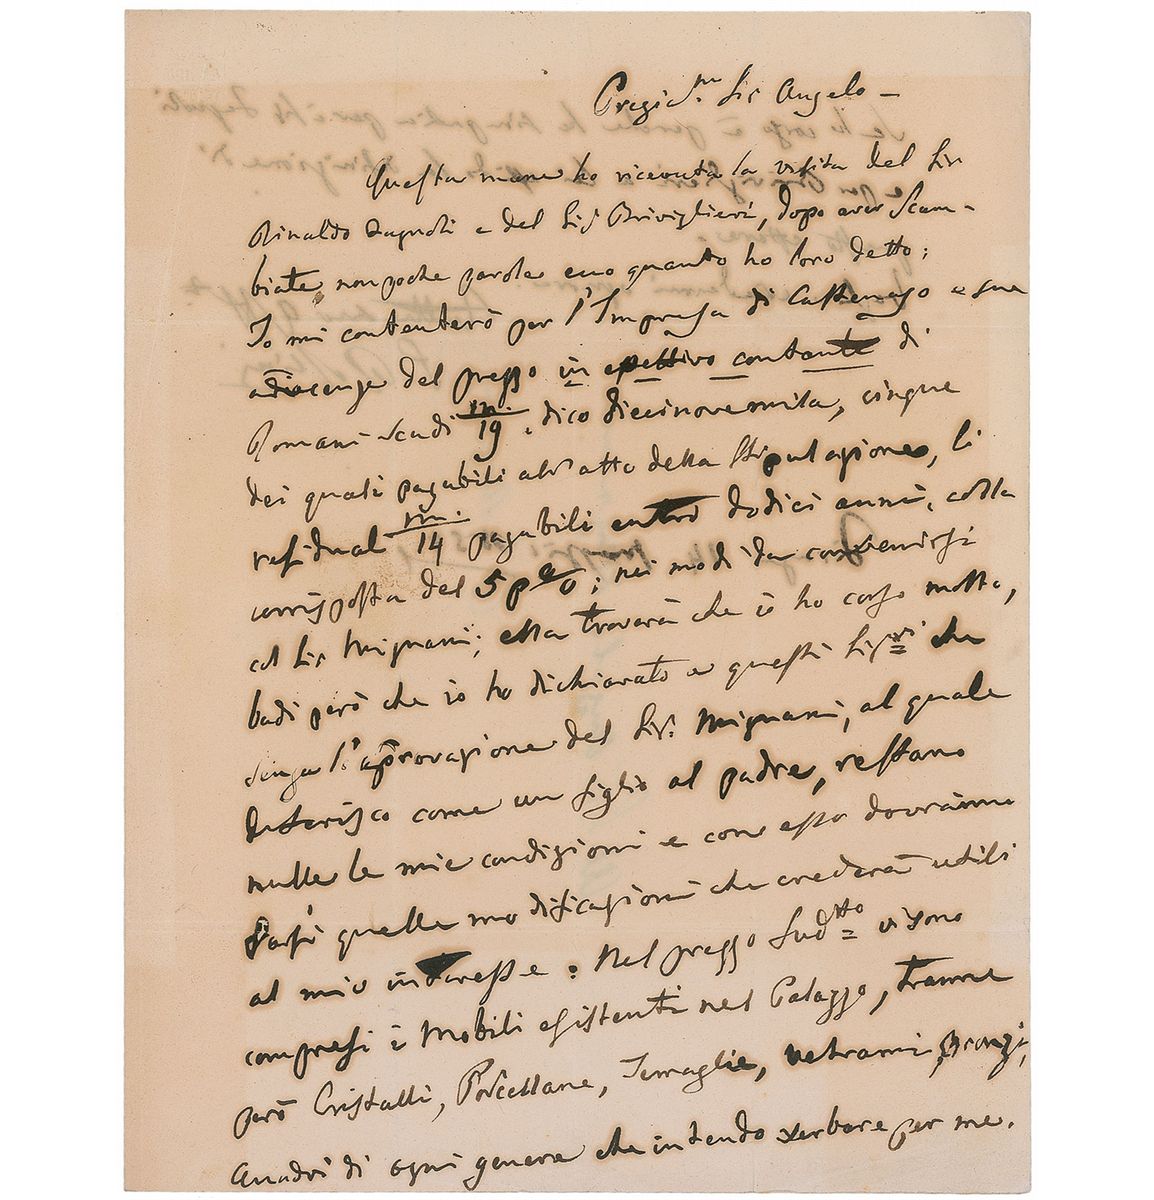 Pregi.mo Sig Angelo —
Questa mane ho ricevuta la visita del Sig
Rinaldo Bagnoli e del Sig Briviglieri, dopo aver Scam-
biate non poche parole ecco quanto ho loro detto;
Io mi contenterò per l'Impresa di Castenaso e sue
adiacenze del prezzo in effettivo contante di
Romani Scudi m/19. dico diecinovemila, cinque
dei quali pagabili all'atto della Stipulazione, li
residuali m/14 pagabili entro dodici anni, colla
corrisposta del 5 p%; nei modi da convenirsi
col Sig Mignani; ella troverà che io ho corso molto,
badi però che io ho dichiarato a questi Sig.ri che
senza l'approvazione del Sig. Mignani, al quale
deferisco come un figlio al padre, restano
nulle le mie condizioni e con esso dovranno
farsi quelle modificazioni che crederà utili
al mio interesse. Nel prezzo Sud.tto vi sono
compresi i Mobili esistenti nel Palazzo, tranne
però Cristalli, Porcellane, Terraglie, vetrami, Bronzi,
Quadri di ogni genere che intendo serbare per me.